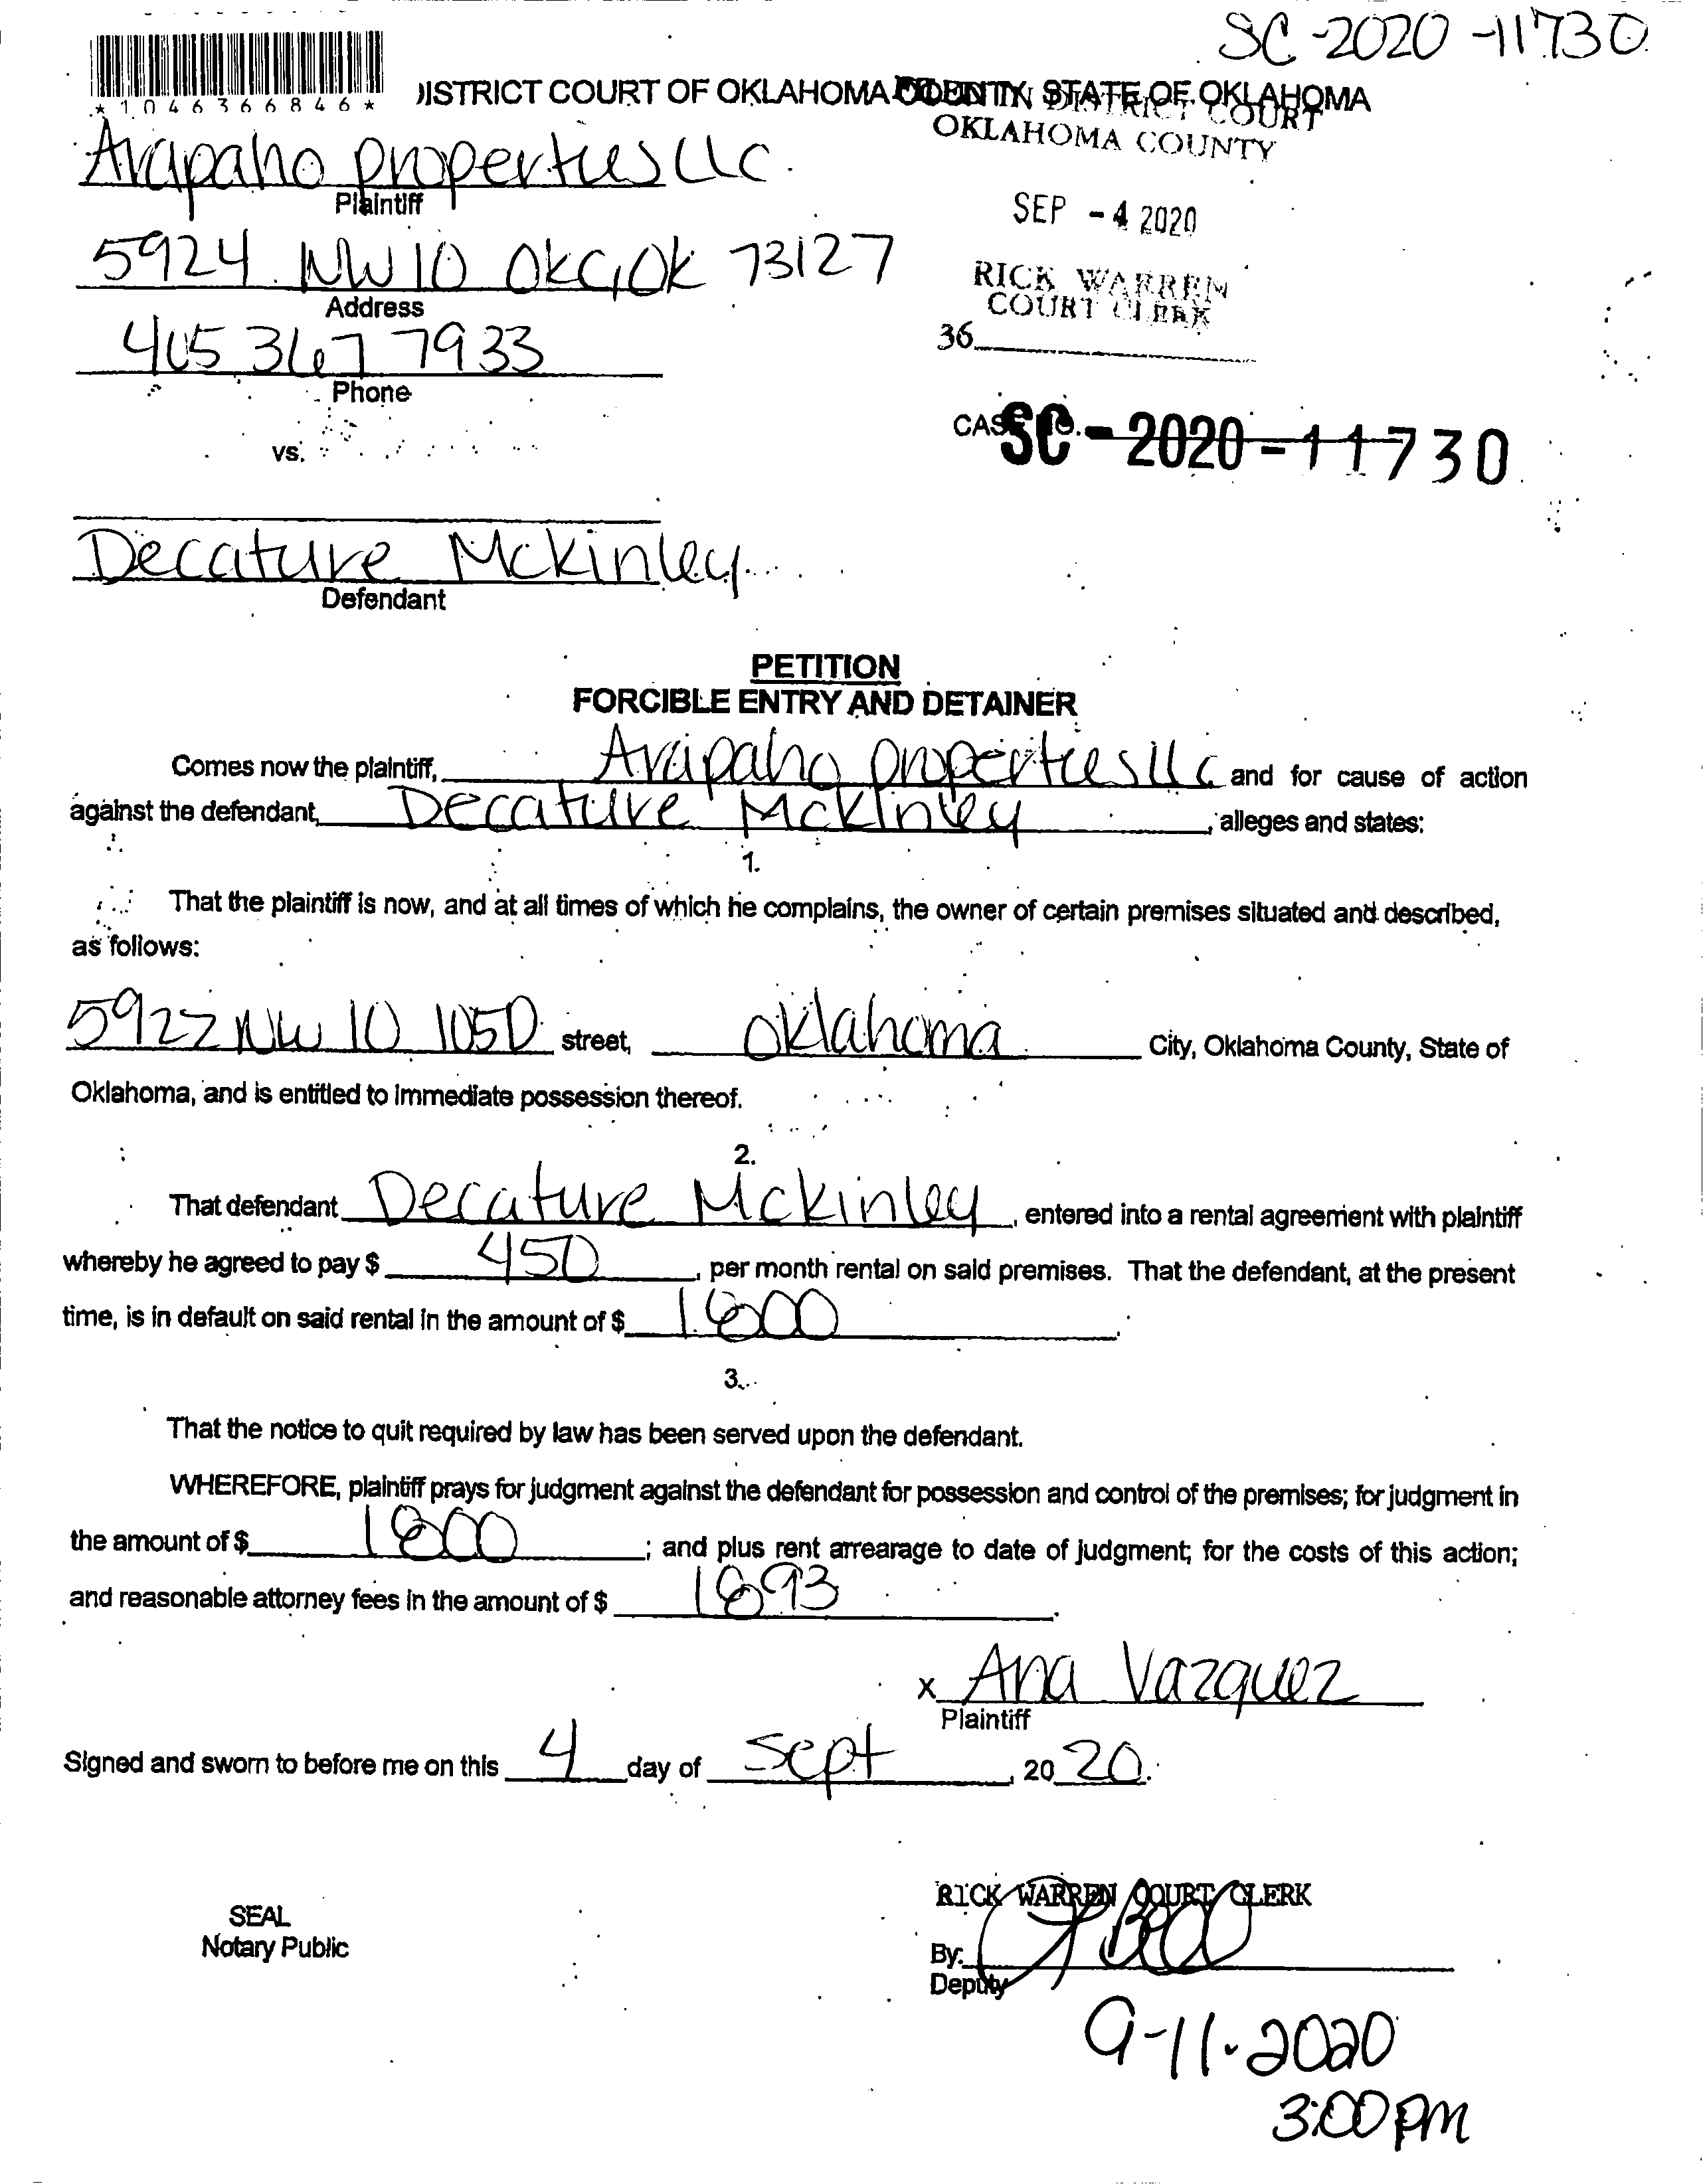 SC-2020-11730
*1046366846*
DISTRICT COURT OF OKLAHOMA COUNTY, STATE OF OKLAHOMA
FILED IN DISTRICT COURT
OKLAHOMA COUNTY
Arapaho properties llc.
Plaintiff
SEP -4 2020
5924 NW 10 OKC, OK 73127
Address
RICK WARREN
COURT CLERK
36
405 367 7933
Phone
CASE NO.
SC-2020-11730
vs.
Decature Mckinley
Defendant
PETITION
FORCIBLE ENTRY AND DETAINER
Comes now the plaintiff, Arapaho properties llc and for cause of action
against the defendant, Decature Mckinley, alleges and states:
1.
That the plaintiff is now, and at all times of which he complains, the owner of certain premises situated and described,
as follows:
5922 NW 10 105D street, Oklahoma City, Oklahoma County, State of
Oklahoma, and is entitled to immediate possession thereof.
2.
That defendant Decature Mckinley, entered into a rental agreement with plaintiff
whereby he agreed to pay $ 450, per month rental on said premises. That the defendant, at the present
time, is in default on said rental in the amount of $ 1800.
3.
That the notice to quit required by law has been served upon the defendant.
WHEREFORE, plaintiff prays for judgment against the defendant for possession and control of the premises; for judgment in
the amount of $ 1800; and plus rent arrearage to date of judgment; for the costs of this action;
and reasonable attorney fees in the amount of $ 1893.
x Ana Vazquez
Plaintiff
Signed and sworn to before me on this 4 day of Sept, 2020.
RICK WARREN COURT CLERK
SEAL
Notary Public
By:
Deputy
9-11-2020
3:00 PM